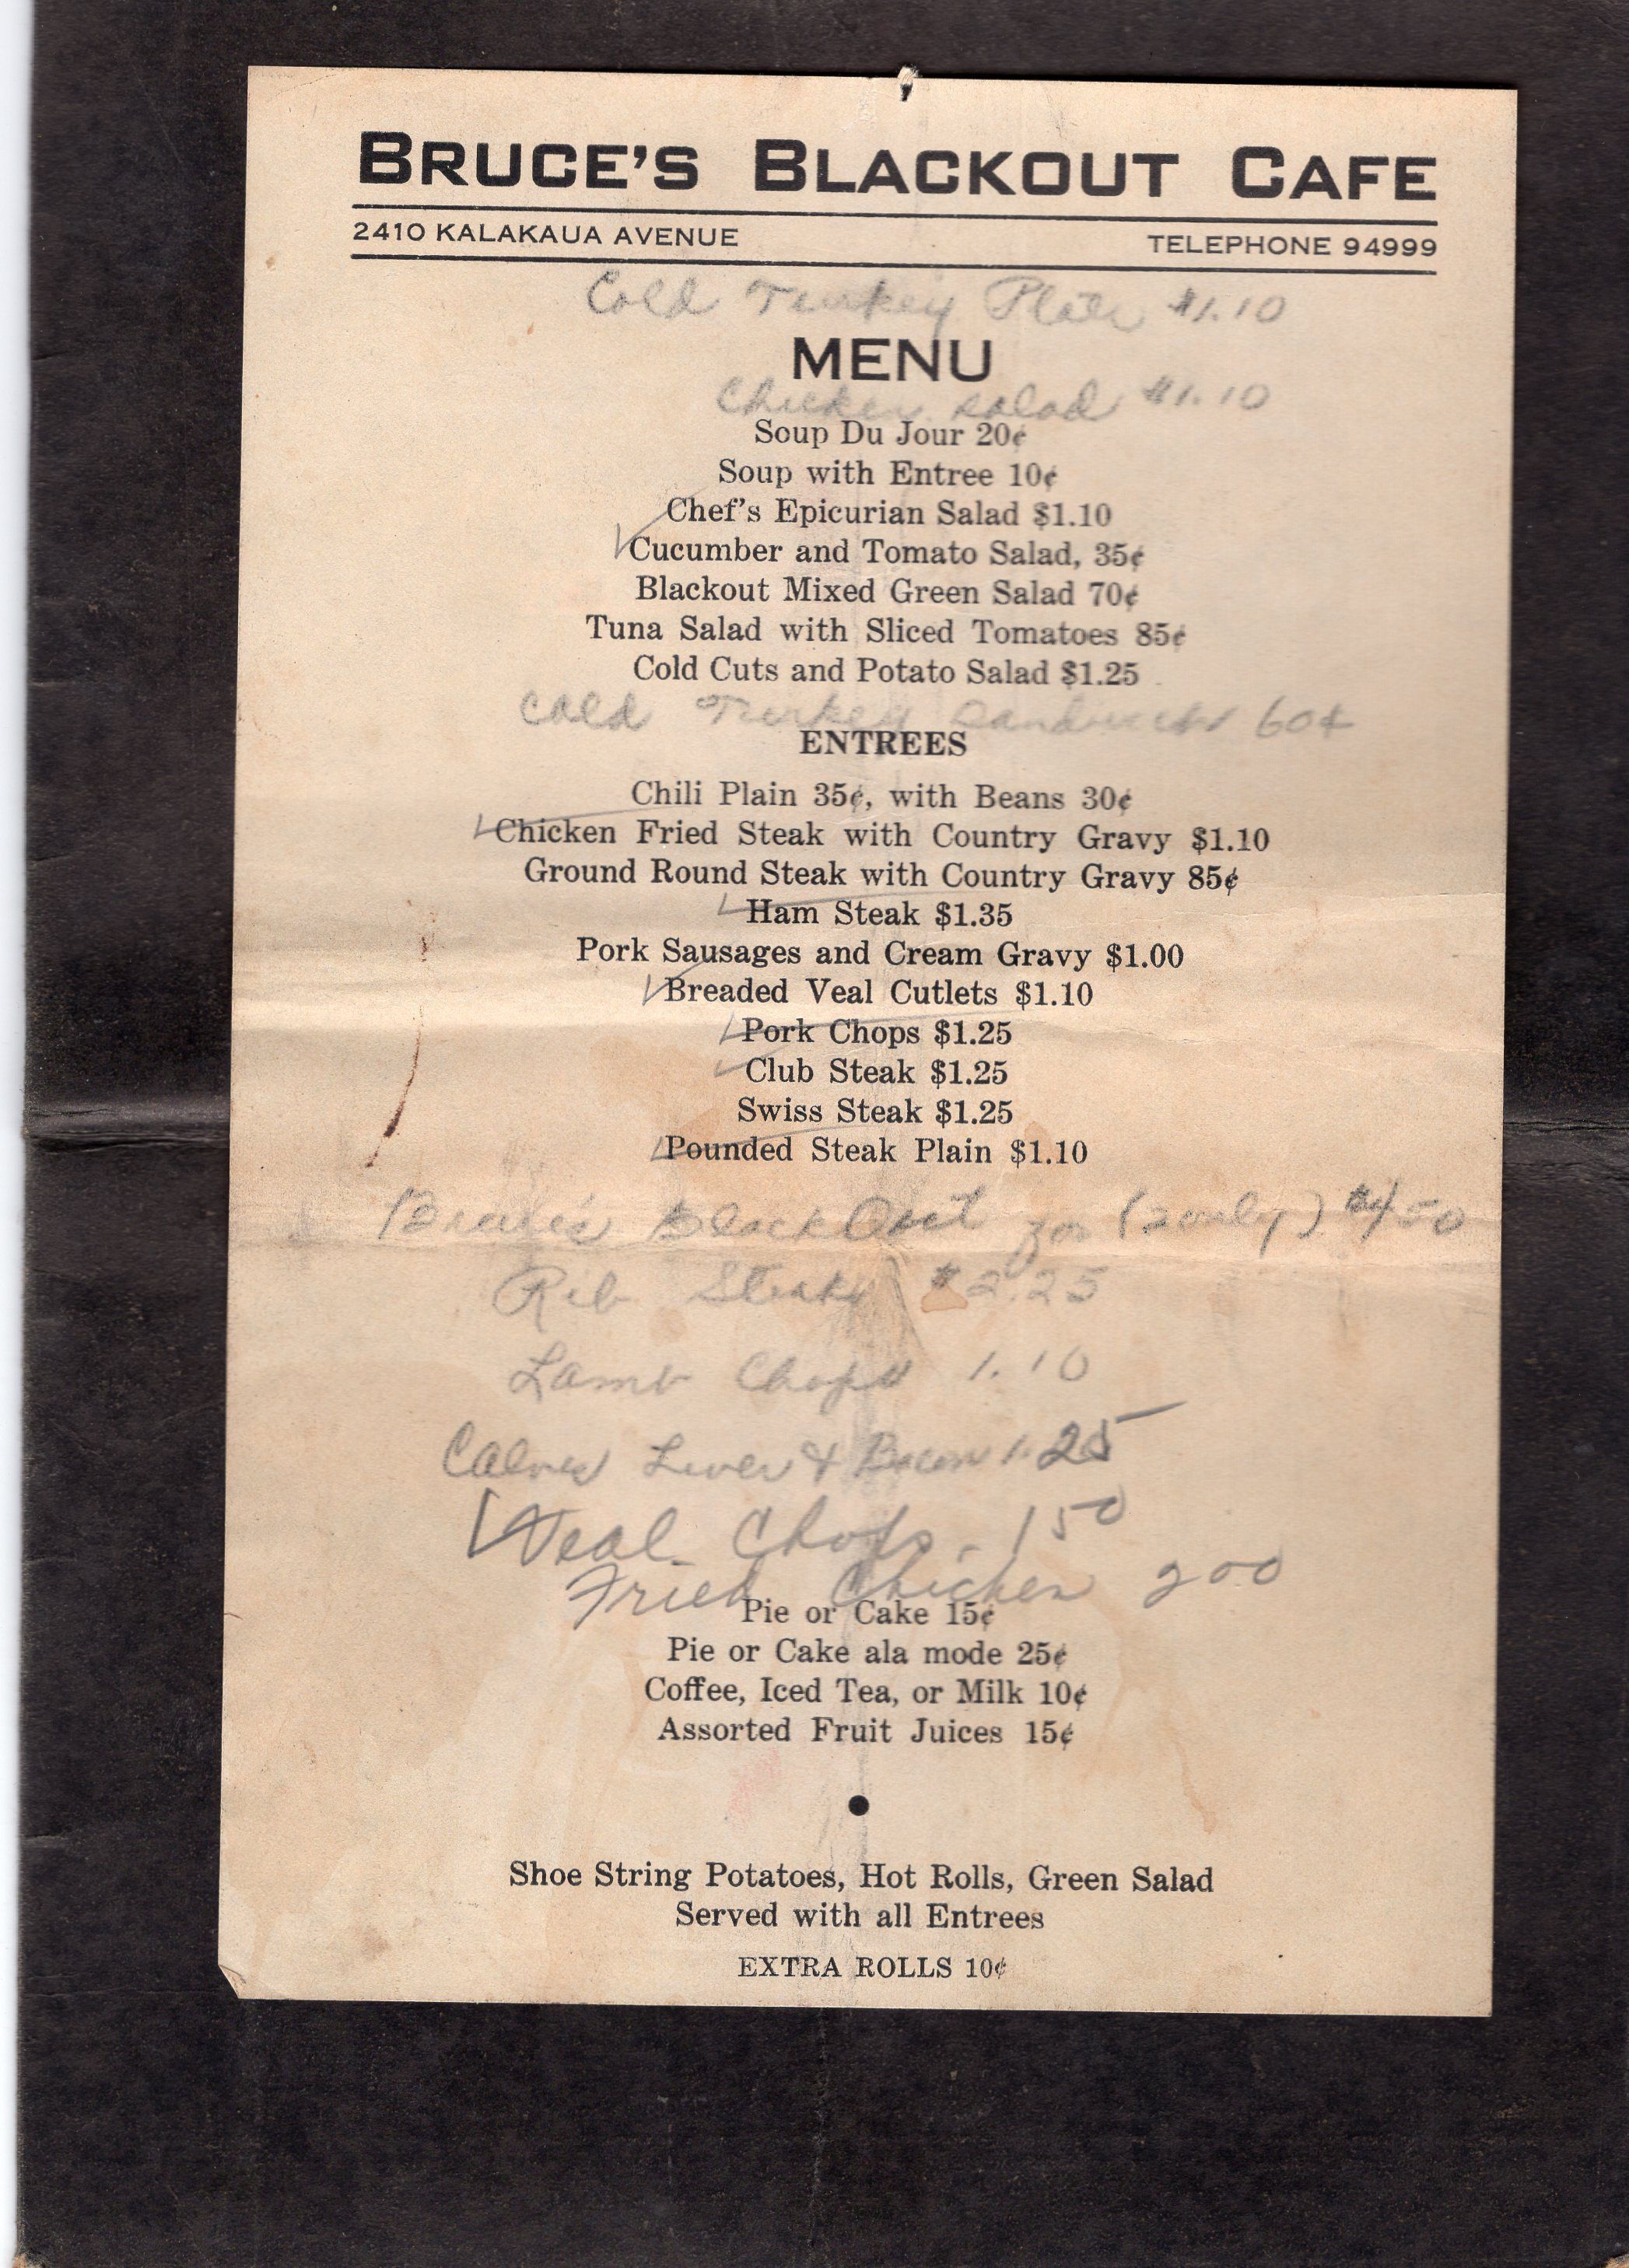 BRUCE'S BLACKOUT CAFE
2410 KALAKAUA AVENUE TELEPHONE 94999
Cold Turkey Plate $1.10
MENU
Chicken salad $1.10
Soup Du Jour 20¢
Soup with Entree 10¢
Chef's Epicurian Salad $1.10
Cucumber and Tomato Salad, 35¢
Blackout Mixed Green Salad 70¢
Tuna Salad with Sliced Tomatoes 85¢
Cold Cuts and Potato Salad $1.25
Cold Turkey Sandwich 60¢
ENTREES
Chili Plain 35¢, with Beans 30¢
Chicken Fried Steak with Country Gravy $1.10
Ground Round Steak with Country Gravy 85¢
Ham Steak $1.35
Pork Sausages and Cream Gravy $1.00
Breaded Veal Cutlets $1.10
Pork Chops $1.25
Club Steak $1.25
Swiss Steak $1.25
Pounded Steak Plain $1.10
Bruce's BlackOut for (2 only) $4.50
Rib Steak $2.25
Lamb Chops 1.10
Calves Liver & Bacon 1.25
Veal Chops. 150
Fried Chicken 200
Pie or Cake 15¢
Pie or Cake ala mode 25¢
Coffee, Iced Tea, or Milk 10¢
Assorted Fruit Juices 15¢
Shoe String Potatoes, Hot Rolls, Green Salad
Served with all Entrees
EXTRA ROLLS 10¢